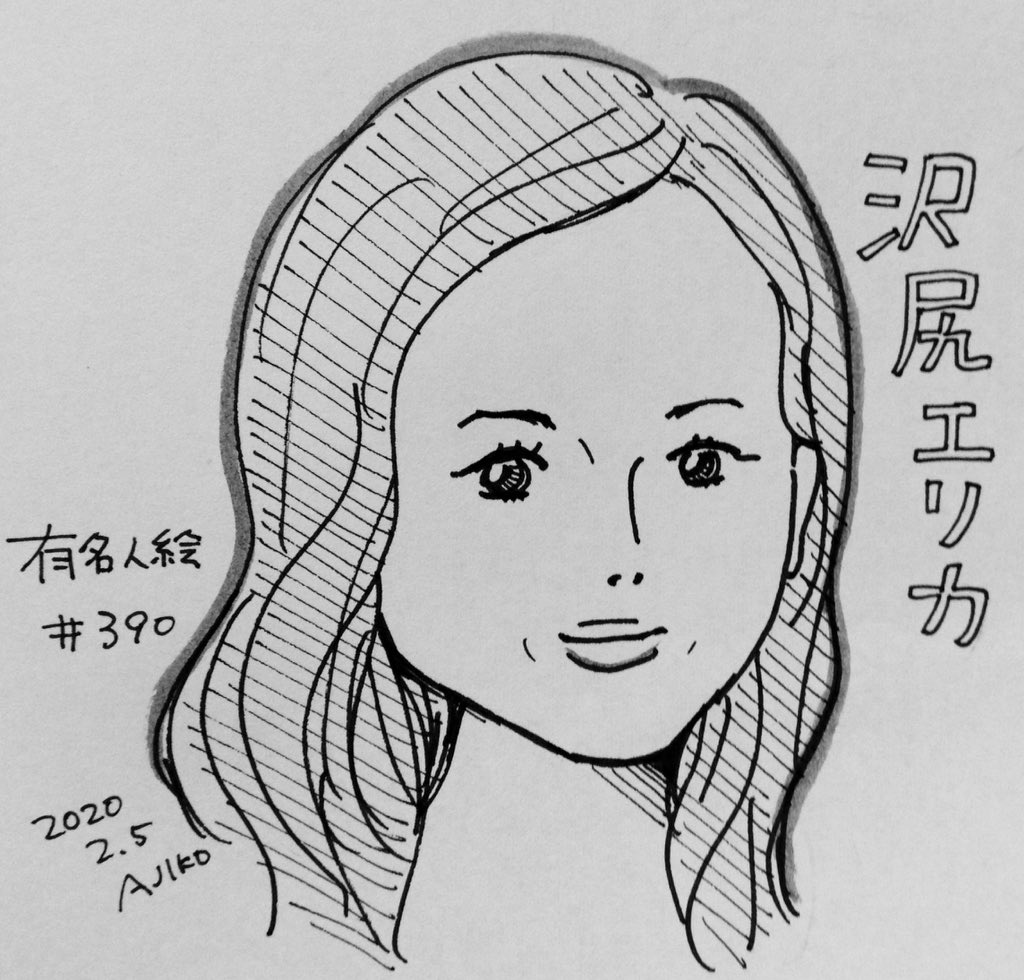 沢尻エリカ
有名人絵
#390
2020
2.5
AJIKO